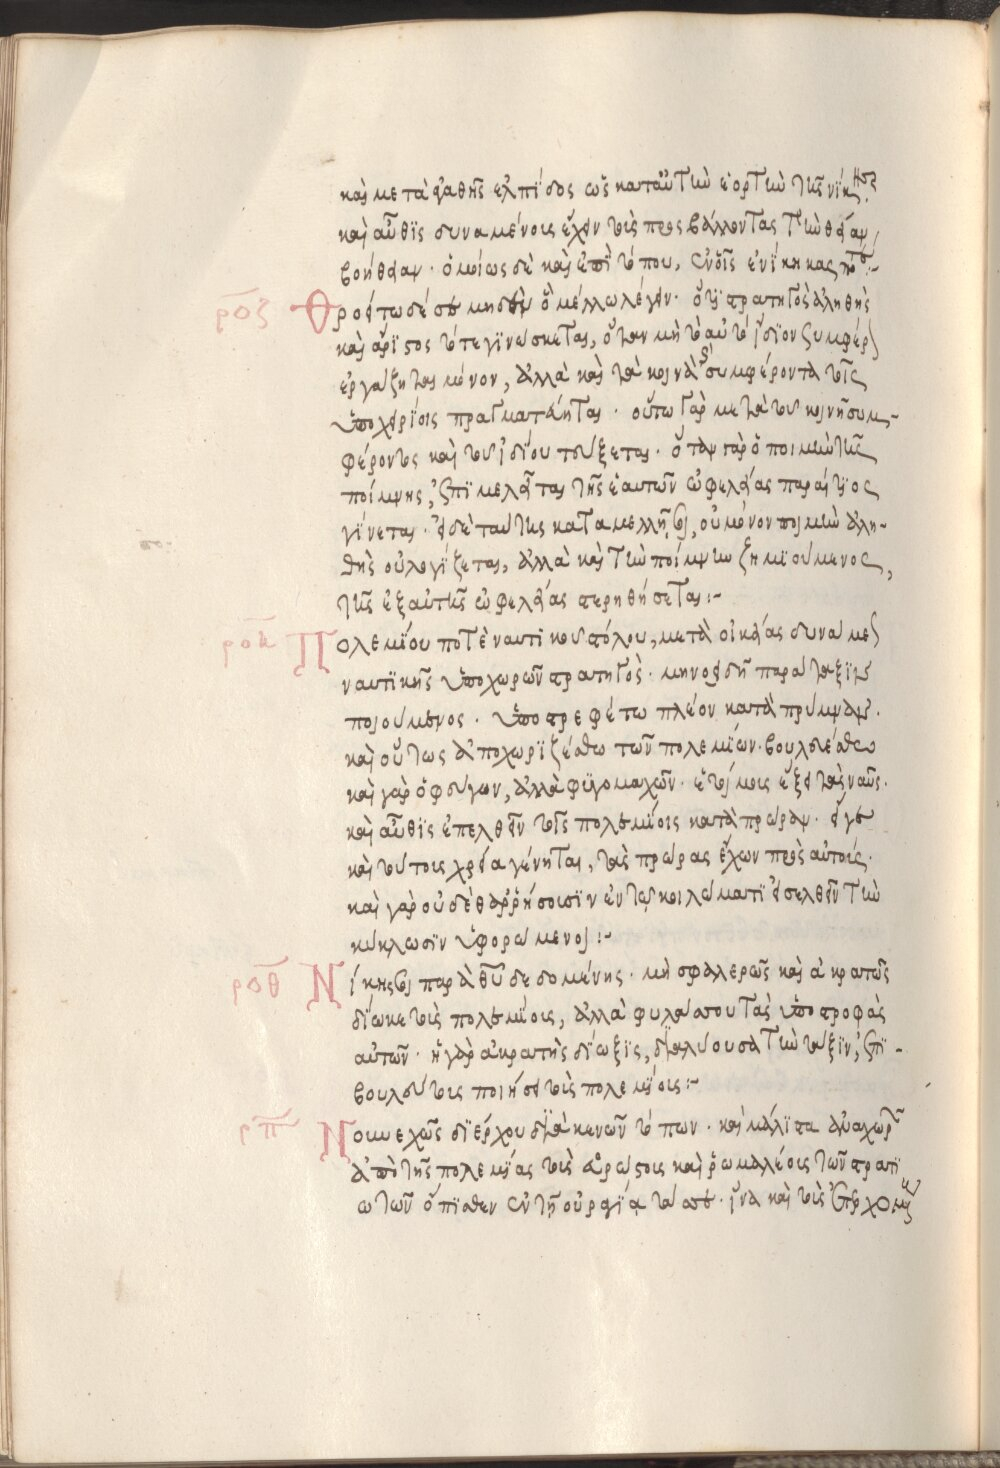 καὶ μετὰ ἀγαθῆς ἐλπίδος ὡς κατ' αὐτὴν ἑορτὴν τῆς νίκης
καὶ αὖθις δυναμένοις ἔχειν τοῖς προσβάλλουσι τὴν θείαν
βοήθειαν. ὁμοίως δὲ καὶ ἐπὶ τόπου, ἐν οἷς ἐνίκησας
ροζ Θρο δέ σε μηδὲν ὃ μέλλω λέγειν. ὁ στρατηγὸς ἀληθὴς
καὶ ἄριστος τότε γινώσκεται, ὅταν μὴ τὸ αὐτοῦ ἴδιον συμφέρον
ἐργάζηται μόνον, ἀλλὰ καὶ τὰ κοινὰ συμφέροντα τοῖς
ὑποχειρίοις πραγματεύηται. οὕτω γὰρ μετὰ τοῦ κοινῆ συμ-
φέροντος καὶ τοῦ ἰδίου τεύξεται. ὅταν γὰρ ὁ ποιμὴν τῆς
ποίμνης, ἐπιμελεῖται τῆς ἑαυτῶν ὠφελείας παραίτιος
γίνεται. εἰ δὲ ταύτης καταμελήσει, οὐ μόνον ποιμὴν ἀλη-
θὴς οὐ λογίζεται, ἀλλὰ καὶ τὴν ποίμνην ζημιούμενος,
τῆς ἐξ αὐτῆς ὠφελείας στερηθήσεται:-
ροη Πολεμίου ποτὲ ναυτικοῦ στόλου, μετὰ οἰκείας δυνάμεως
ναυτικῆς ὑποχωρῶν στρατηγὸς. μηνοειδῆ παράταξιν
ποιούμενος. ὑποστρεφέτω πλέον κατὰ πρύμναν.
καὶ οὕτως ἀποχωριζέσθω τῶν πολεμίων. βουλευέσθω
καὶ γὰρ ὁ φεύγων, ἀλλὰ φυγομαχῶν. ἑτοίμοις ἕξει τὰς ναῦς.
καὶ αὖθις ἐπελθεῖν τοῖς πολεμίοις κατὰ πρώραν. εἴγε
καὶ τούτοις χρεία γένηται, τὰς πρώρας ἔχων πρὸς αὐτοὺς.
καὶ γὰρ οὐδὲ θαρρήσουσιν ἐν τῷ κοιλώματι εἰσελθεῖν τὴν
κύκλωσιν ὑφορώμενοι:-
ροθ Νίκης σοι παρὰ θεοῦ δεδομένης. μὴ σφαλερῶς καὶ ἀκρατῶς
δίωκε τοὺς πολεμίους, ἀλλὰ φυλάττου τὰς ὑποστροφὰς
αὐτῶν. ἡ γὰρ ἀκρατὴς δίωξις, διαλύουσα τὴν τάξιν, ἐπι-
βούλους τοὺς ποιήσει τοὺς πολεμίους:-
ρπ Νουνεχῶς διέρχου διὰ στενῶν τόπων. καὶ μάλιστα ἀναχωρῶν
ἀπὸ τῆς πολεμίας τοὺς ἀρίστους καὶ ῥωμαλέους τῶν στρατι
ωτῶν ὄπισθεν ἐν τῇ οὐραγίᾳ τάσσε. ἵνα καὶ τοὺς ἐπερχομένους